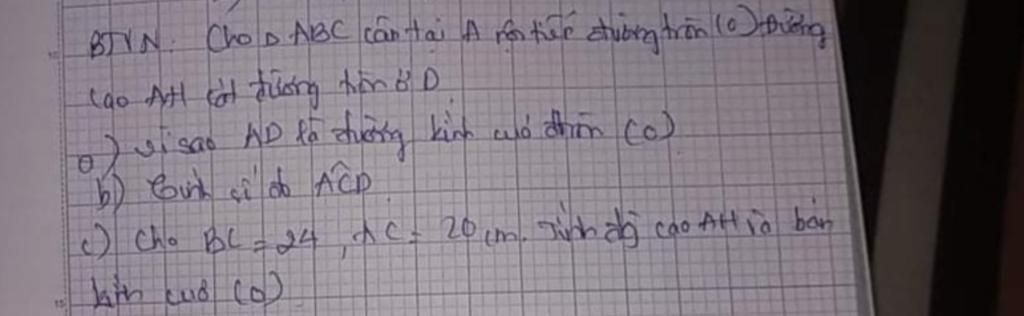 BTVN. Cho Δ ABC cân tại A nội tiếp đường tròn (O) Đường
cao AH cắt đường tròn ở D
a) Vì sao AD là đường kính của đtròn (O)
b) Tính số đo ACD
c) Cho BC = 24, AC = 20 cm. Tính độ cao AH và bán
kính của (O)